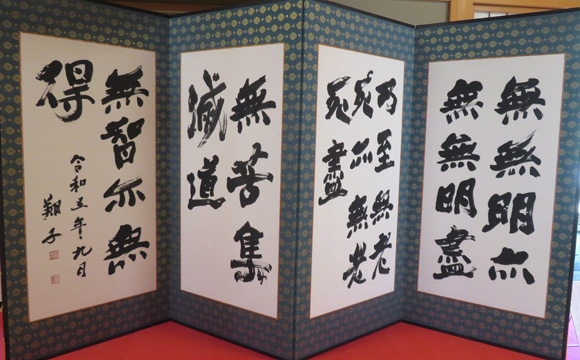 無無明亦
無無明盡
乃至無老
死亦無老
死盡
無苦集
滅道
無智亦無
得
令和五年九月
翔子